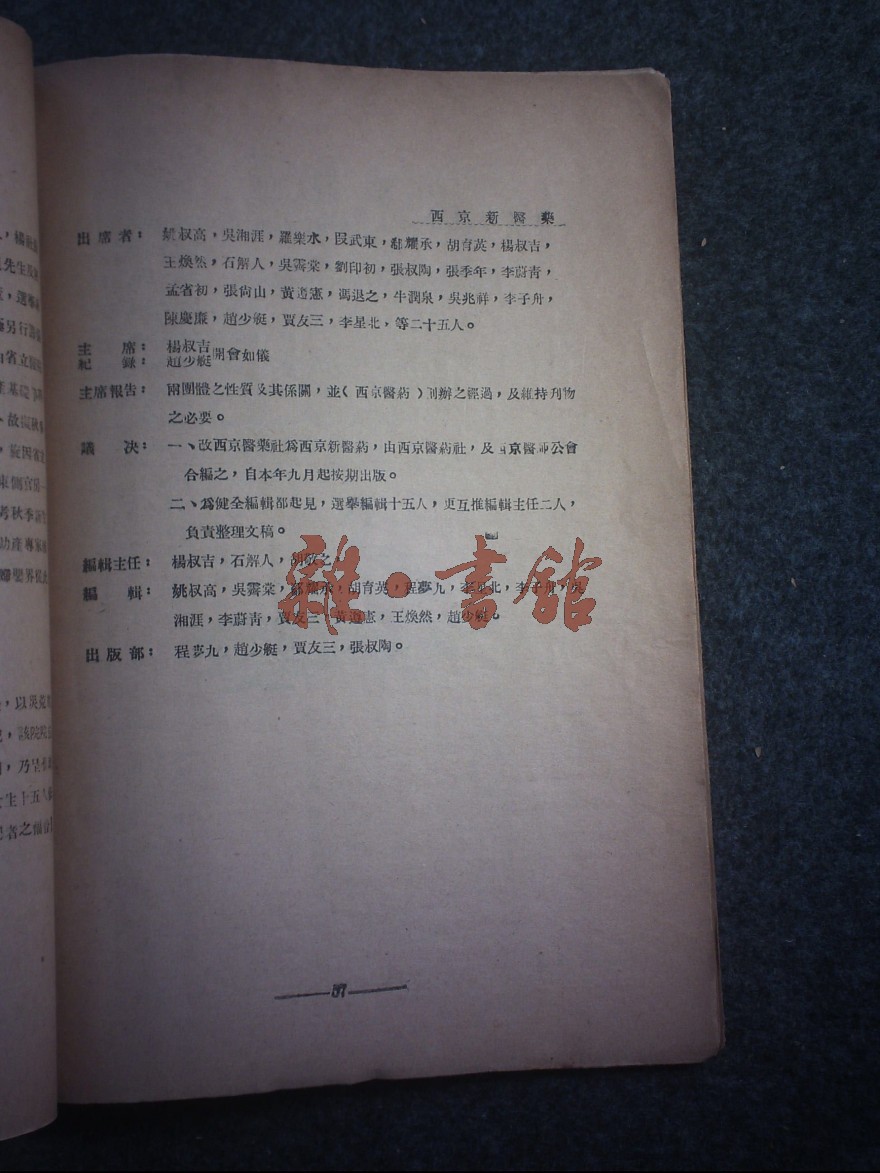 西京新醫藥
出席者：姚叔高，吳湘涯，羅樂水，段武東，鄒耀承，胡育英，楊叔吉，
王煥然，石解人，吳霽棠，劉印初，張叔陶，張季年，李蔚青，
孟省初，張尙山，黃道憲，馮退之，牛潤泉，吳兆祥，李子舟，
陳慶廉，趙少艇，賈友三，李星北，等二十五人。
主席：楊叔吉
紀錄：趙少艇 開會如儀
主席報告：兩團體之性質及其係關，並（西京醫葯）刱辦之經過，及維持刊物
之必要。
議决：一、改西京醫藥社爲西京新醫葯，由西京醫葯社，及西京醫師公會
合編之，自本年九月起按期出版。
二、爲健全編輯部起見，選舉編輯十五人，更互推編輯主任二人，
負責整理文稿。
編輯主任：楊叔吉，石解人，胡敬之，
編輯：姚叔高，吳霽棠，鄒耀承，胡育英，程夢九，李星北，李子舟，吳
湘涯，李蔚青，賈友三，黃道憲，王煥然，趙少艇。
出版部：程夢九，趙少艇，賈友三，張叔陶。
57
雜·書館